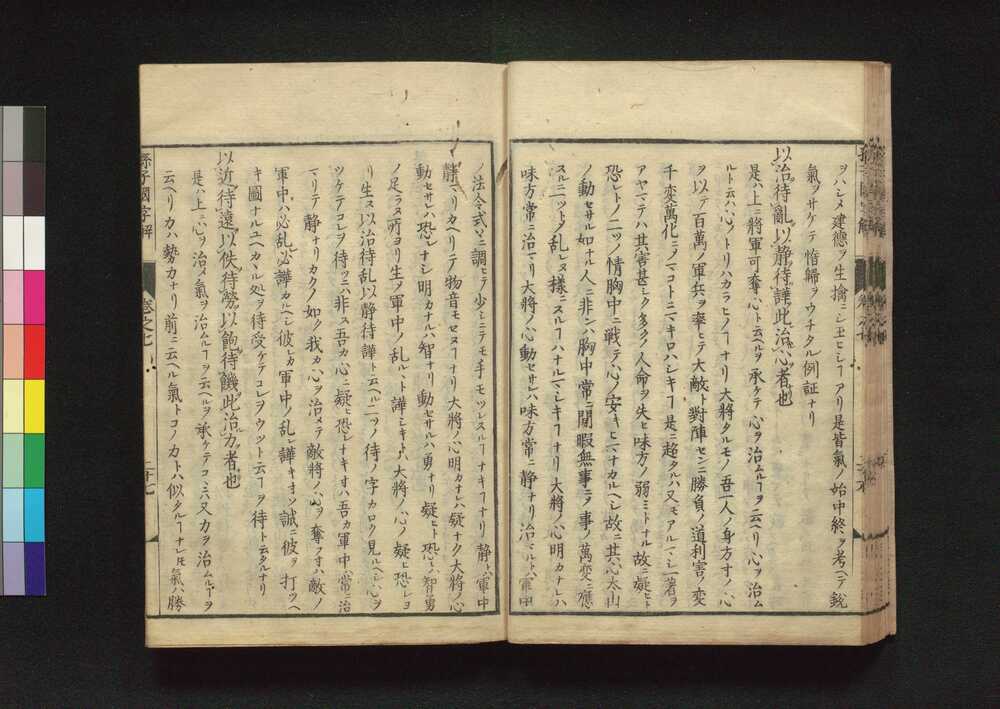 ヲハシメ建德ヲ生擒ニシ玉ヒシヿアリ是皆氣ノ始中終ヲ考ヘテ銳
氣ヲサケテ惰歸ヲウチタル例証ナリ
以治待亂以静待譁此治心者也
是ハ上ニ將軍可奪心ト云ヘルヲ承ケテ心ヲ治ムルヿヲ云ヘリ心ヲ治ム
ルト云ハ心ノトリハカラヒノヿナリ大將タルモノ吾一人ノ身方寸ノ心
ヲ以テ百萬ノ軍兵ヲ率ヒテ大敵ト對陣センニ勝負ノ道利害ノ変
千変萬化ニメマコトニマキロハシキヿ是ニ超タルハ又モアルマシ一著ヲ
アヤマテハ其害甚シク多クノ人命ヲ失ヒ味方ノ弱ミトナル故ニ疑ヒト
恐レトノ二ツノ情胸中ニ戰テ心ノ安キヒマナカルヘシ故ニ其心太山
ノ動セサル如ナル人ニ非ンハ胸中常ニ閒暇無事ニメ事ノ萬変ニ應
スルニツキテ乱レヌ様ニスルヿハナルマシキヿナリ大將ノ心明カナレハ
味方常ニ治マリ大將ノ心動セサレハ味方常ニ静ナリ治マルトハ軍中
ノ法令式々ニ調ヒテ少シニテモ手モツレスルヿナキヿナリ静トハ軍中
静マリカヘリテ物音モセヌヿナリ大將ノ心明カナレハ疑ナク大將ノ心
動セサレハ恐レナシ明カナルハ智ナリ動セサルハ勇ナリ疑ヒト恐レハ智勇
ノ足ラヌ所ヨリ生ス軍中ノ乱ルヽト譁シキトハ大將ノ心ノ疑ヒ恐レヨ
リ生ス以治待乱以静待譁ト云ヘル二ツノ待ノ字カロク見ルヘシ心ヲ
ツケテコレヲ待ツニハ非ス吾カ心ニ疑ヒ恐レナキオハ吾カ軍中常ニ治
マリテ静ナリカクノ如ク我カ心ヲ治メテ敵將ノ心ヲ奪フオハ敵ノ
軍中ハ必乱レ必譁カルヘシ彼レカ軍中ノ乱レ譁キオハ誠ニ彼ヲ打ツヘ
キ圖ナルユヘカヽル処ヲ待受ケテコレヲウツト云フヿヲ待ト云タルナリ
以近待遠以佚待勞以飽待饑此治力者也
是ハ上ニ心ヲ治メ氣ヲ治ムルヿヲ云ヘルヲ承ケテコヽニハ又力ヲ治ムルヿヲ
云ヘリ力ハ勢力ナリ前ニ云ヘル氣トコノ力トハ似タルヿナレ𪜈氣ハ勝
孫子國字解
卷之七
二十七